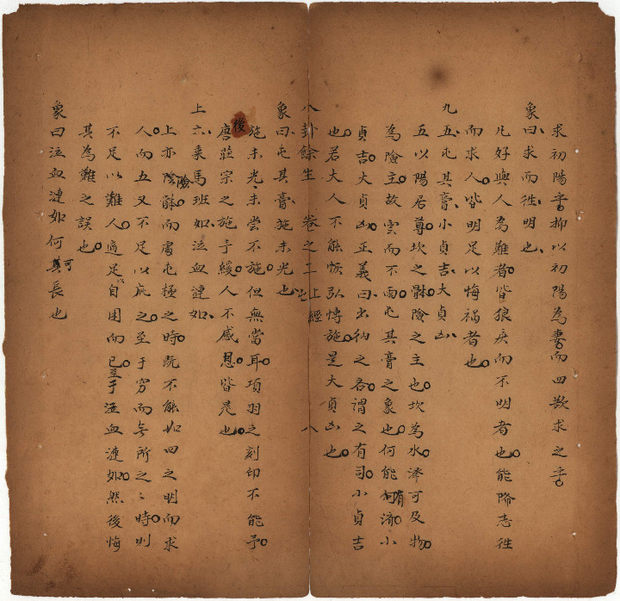 求初陽乎抑以初陽為妻而四敢求之乎
象曰求而徃明也
凡好與人為難者皆狼戾而不明者也能降志徃
而求人皆明足以悔禍者也
九五屯其膏小貞吉大貞凶
五以陽居尊坎之體險之主也坎為水澤可及物
為險主故雲而不雨屯其膏之象也何能有濟小
貞吉大貞凶正義曰出納之吝謂之有司小貞吉
也若大人不能恢弘博施是大貞凶也
八卦餘生 卷之二 上經 屯 八
象曰屯其膏施未光也
施未光未嘗不施但無當耳項羽之刻印不能予
唐莊宗之施予緩後人不感恩皆是也
上六乘馬班如泣血漣如
上亦陰險辭而處屯極之時既不能如四之明而求
人而五又不足以庇之至于窮而無所之之時則
不足以難人適足以自困而已至于泣血漣如然後悔
其為難之誤也
象曰泣血漣如何可長也